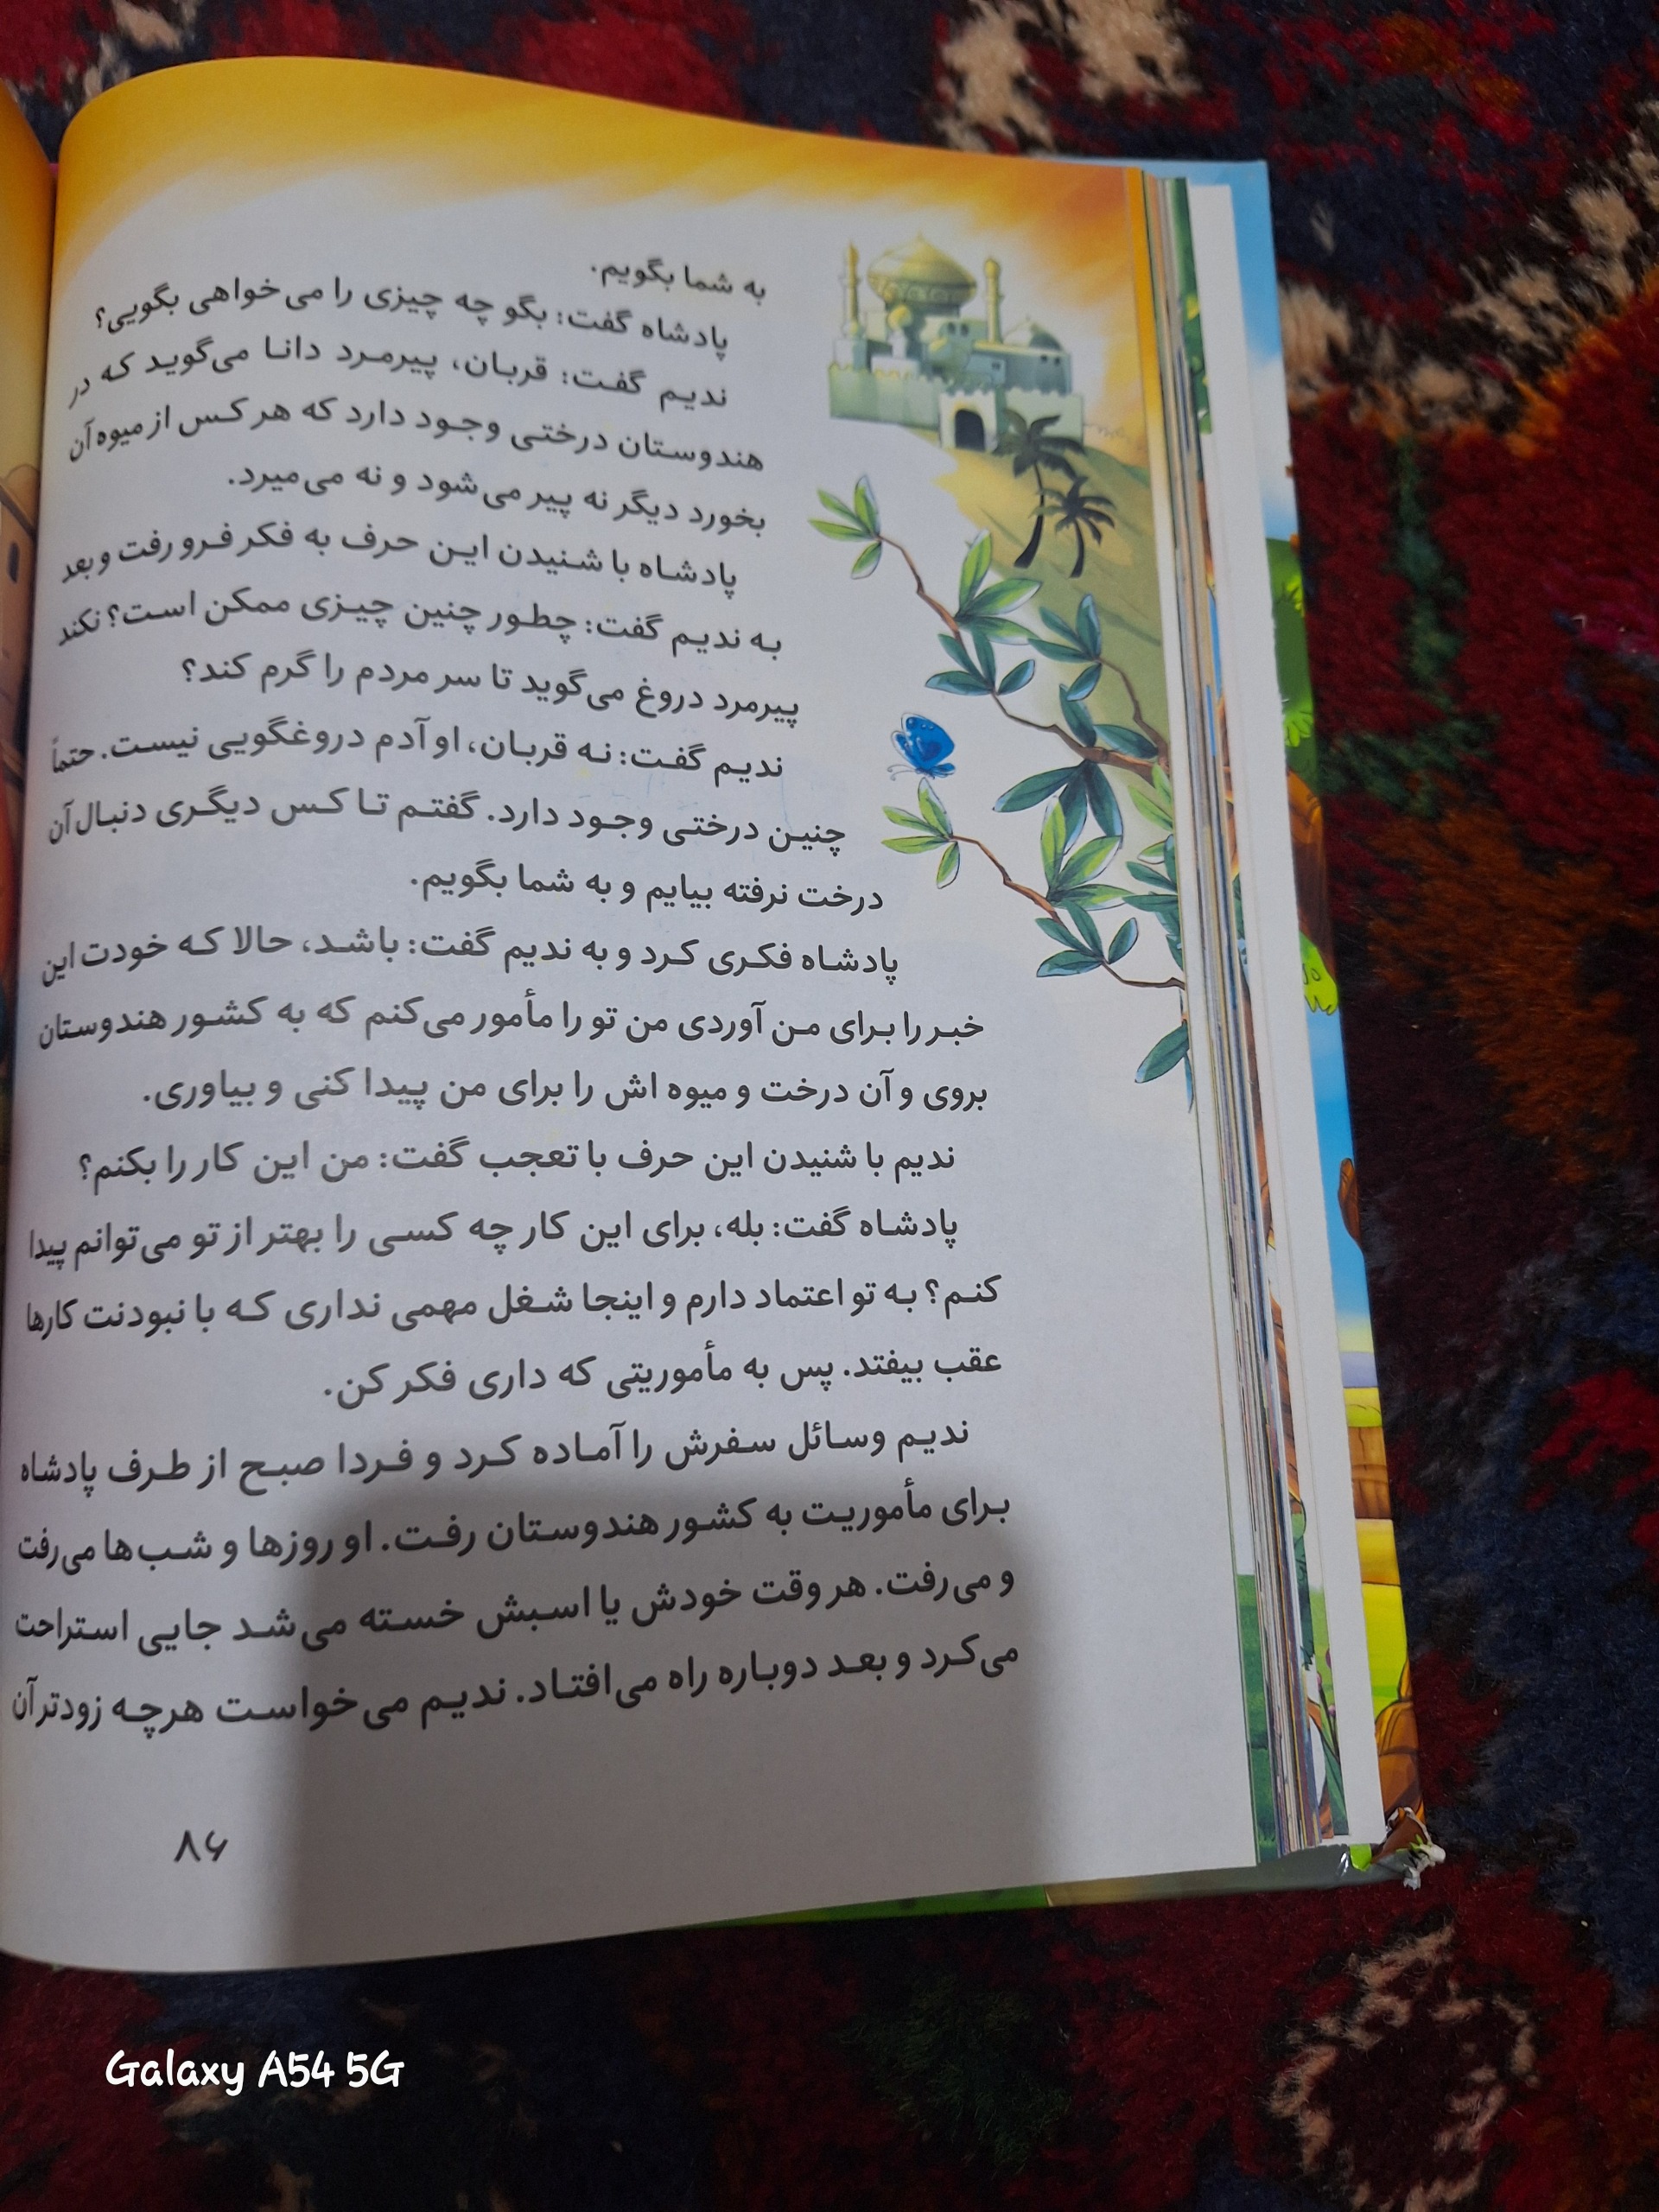 به شما بگویم.
پادشاه گفت: بگو چه چیزی را می‌خواهی بگویی؟
ندیم گفت: قربان، پیرمرد دانا می‌گوید که در
هندوستان درختی وجود دارد که هر کس از میوه آن
بخورد دیگر نه پیر می‌شود و نه می‌میرد.
پادشاه با شنیدن این حرف به فکر فرو رفت و بعد
به ندیم گفت: چطور چنین چیزی ممکن است؟ نکند
پیرمرد دروغ می‌گوید تا سر مردم را گرم کند؟
ندیم گفت: نه قربان، او آدم دروغگویی نیست. حتماً
چنین درختی وجود دارد. گفتم تا کس دیگری دنبال آن
درخت نرفته بیایم و به شما بگویم.
پادشاه فکری کرد و به ندیم گفت: باشد، حالا که خودت این
خبر را برای من آوردی من تو را مأمور می‌کنم که به کشور هندوستان
بروی و آن درخت و میوه اش را برای من پیدا کنی و بیاوری.
ندیم با شنیدن این حرف با تعجب گفت: من این کار را بکنم؟
پادشاه گفت: بله، برای این کار چه کسی را بهتر از تو می‌توانم پیدا
کنم؟ به تو اعتماد دارم و اینجا شغل مهمی نداری که با نبودنت کارها
عقب بیفتد. پس به مأموریتی که داری فکر کن.
ندیم وسائل سفرش را آماده کرد و فردا صبح از طرف پادشاه
برای مأموریت به کشور هندوستان رفت. او روزها و شب‌ها می‌رفت
و می‌رفت. هر وقت خودش یا اسبش خسته می‌شد جایی استراحت
می‌کرد و بعد دوباره راه می‌افتاد. ندیم می‌خواست هرچه زودتر آن
۸۶
Galaxy A54 5G